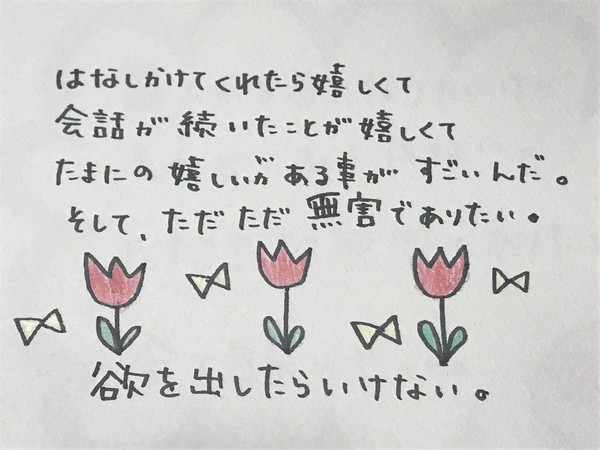 はなしかけてくれたら嬉しくて
会話が続いたことが嬉しくて
たまにの嬉しいがある事がすごいんだ。
そして、ただただ無害でありたい。
欲を出したらいけない。